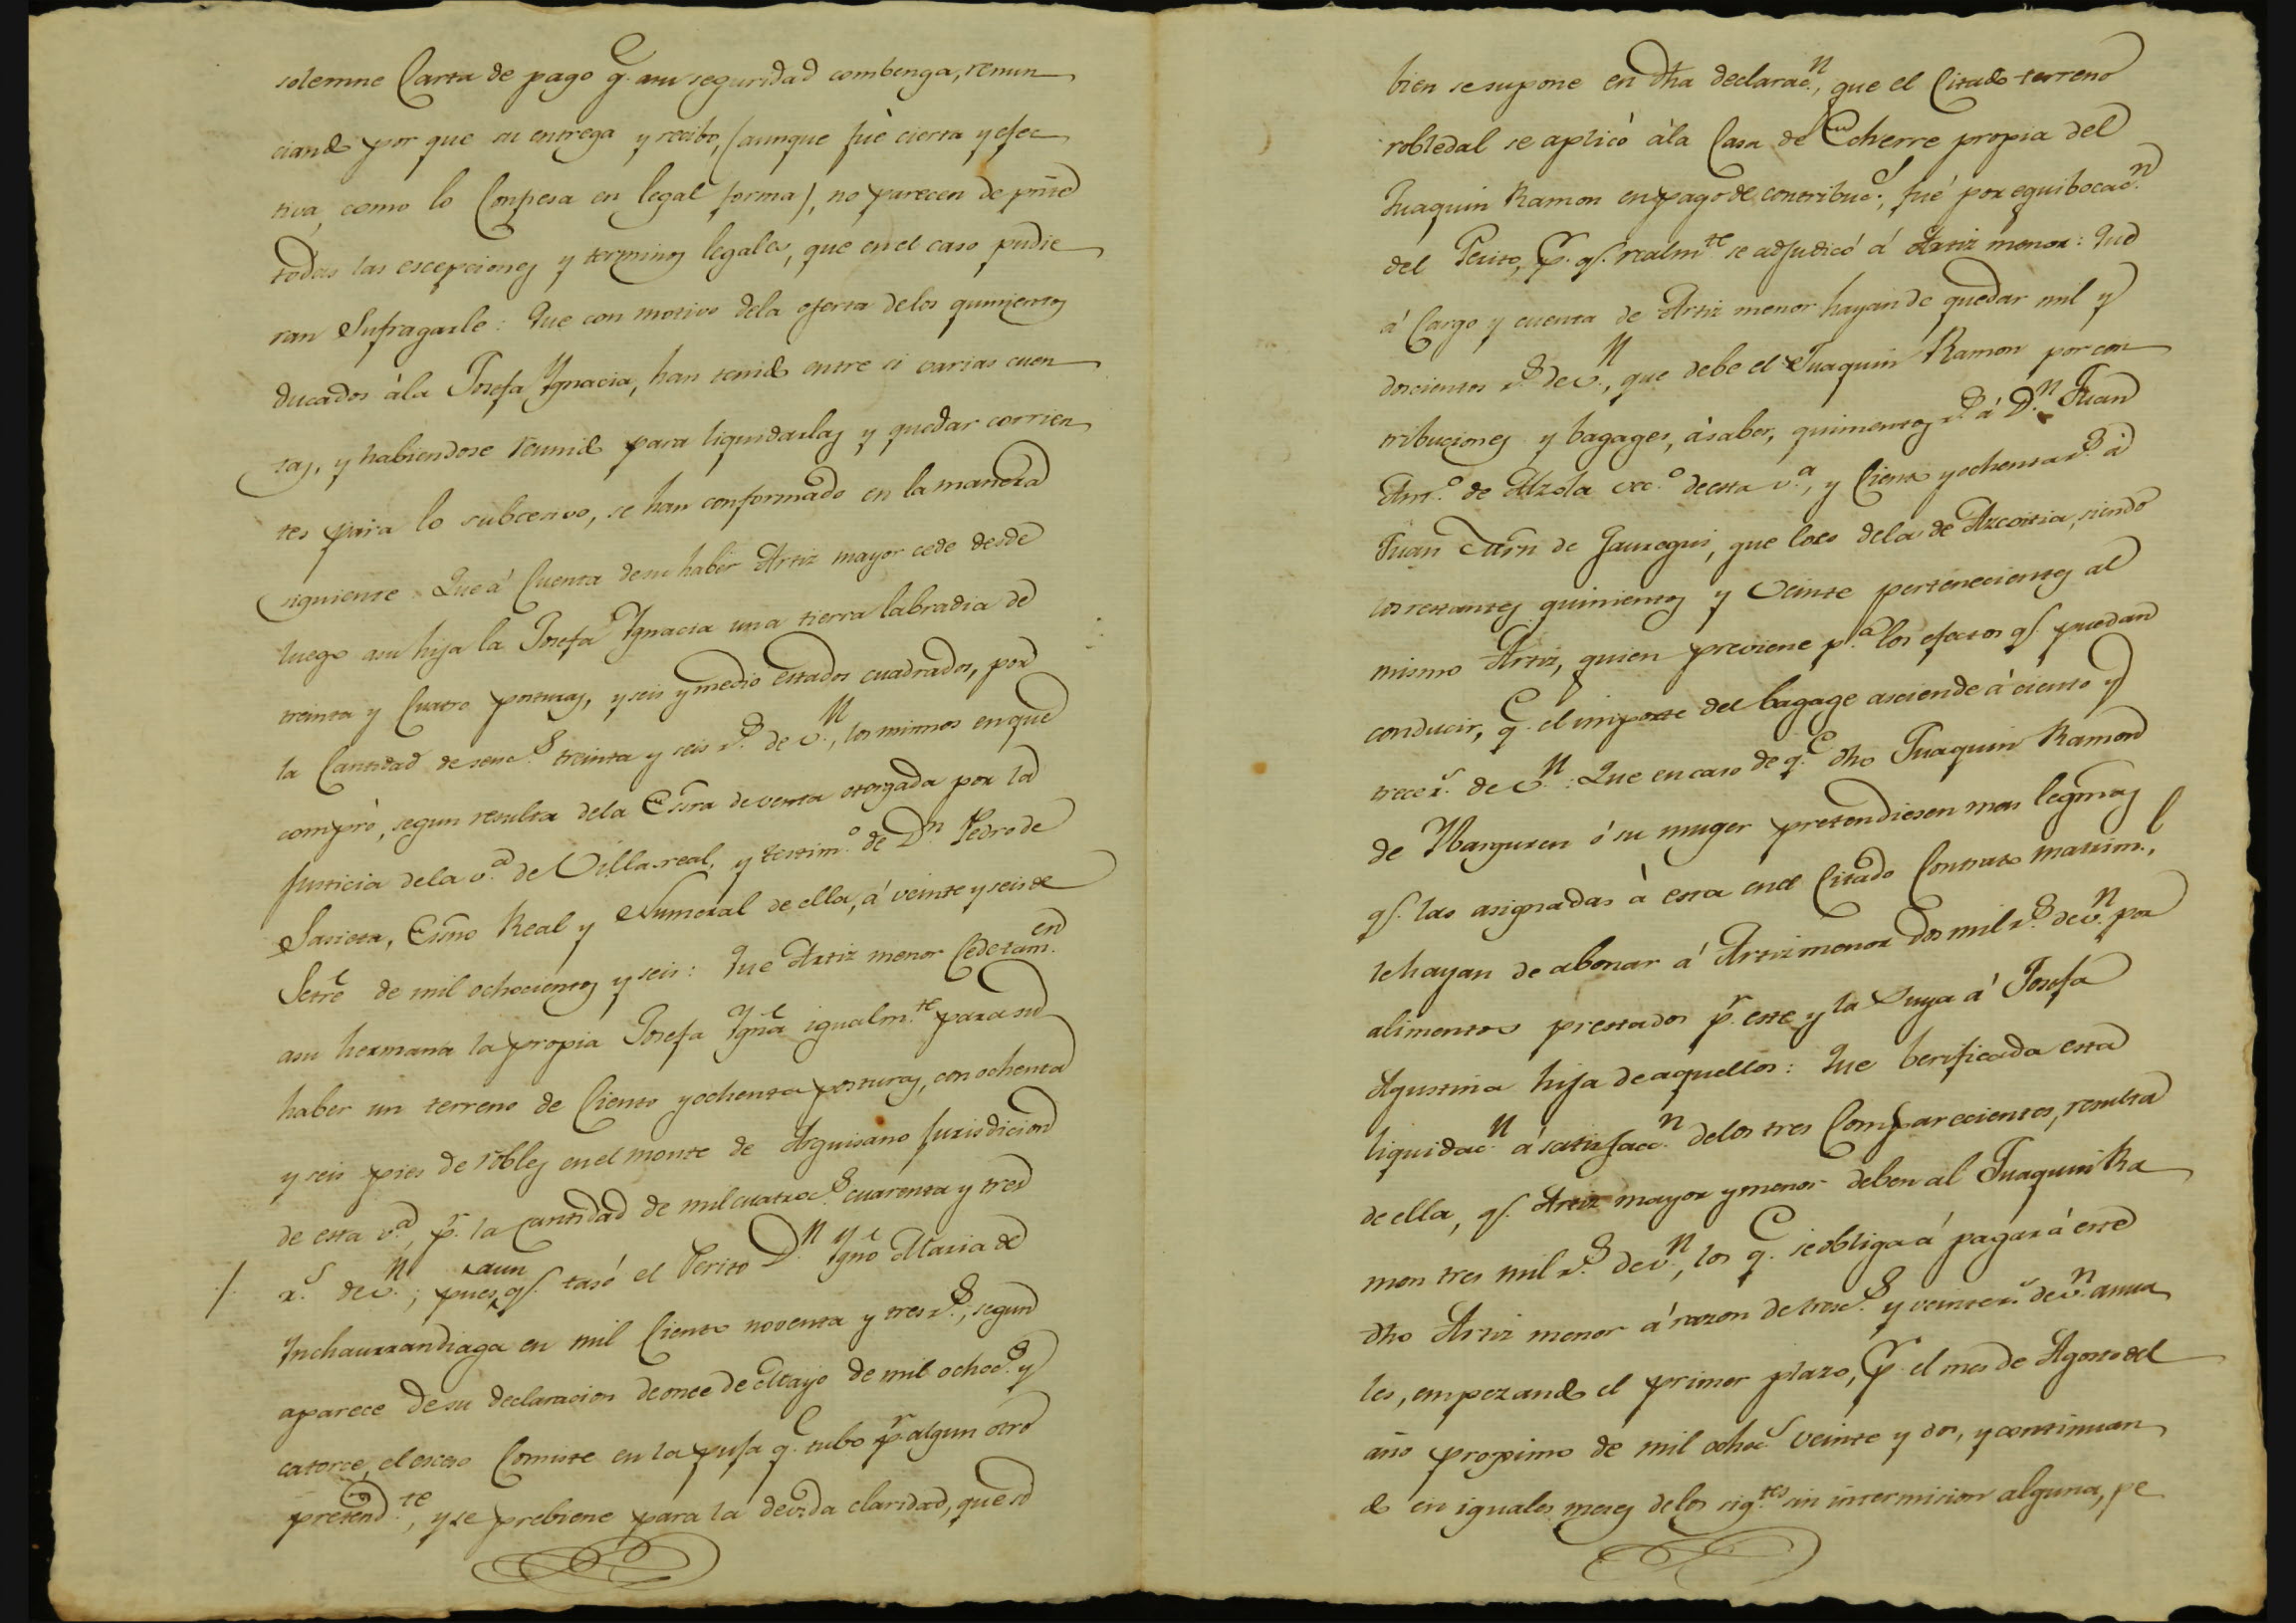 solemne Carta de pago q.e a su seguridad combenga, renun
ciando por que su entrega y recibo, (aunque fué cierta y efec
tiva, como lo Confiesa en legal forma), no parecen de pñte
todas las escepciones y terminos legales, que en el caso pudie
ran Sufragarle: Que con motivo dela oferta delos quinientos
ducados àla Josefa Ygnacia, han tenido entre si varias cuen
tas, y habiendose reunido para liquidarlas y quedar corrien
tes para lo subcesivo, se han conformado en la manera
siguiente: Que á Cuenta desu haber Artiz mayor cede desde
luego asu hija la Josefa Ygnacia una tierra labradia de
treinta y Cuatro posturas, y seis y medio estados cuadrados, por
la Cantidad de senc.s treinta y seis r.s de v.n, los mismos en que
compró, segun resulta dela Essra de venta otorgada por la
Justicia dela v.a de Villarreal, y testim.o de D.n Pedro de
Sasieta, Essno Real y Numeral de ella, á veinte y seis de
Setre de mil ochocientos y seis: Que Artiz menor Cede tam.en
asu hermana la propia Josefa Ygña igualm.te para su
haber un terreno de Ciento y ochenta posturas, con ochenta
y seis pies de robles en el monte de Arguisano jurisdicion
de esta v.a, p.r la Cantidad de mil cuatroc.s cuarenta y tres
r.s de v.n; pues aun q.e tasó el Perito D.n Ygño Maria de
Ynchaurrandiaga en mil Ciento noventa y tres r.s, segun
aparece de su declaracion de once de Mayo de mil ochoc.s y
catorce, el esceso Consiste en la puja q.e tubo p.r algun otro
pretend.te, y se prebiene para la devida claridad, que si
bien se supone en dha declarac.n, que el Citado terreno
robledal se aplicó àla Casa de Echerre propia del
Juaquin Ramon en pago de contribuc.s, fué por equibocac.n
del Perito, p.r q.e realm.te se adjudicó á Artiz menor: Que
á Cargo y cuenta de Artiz menor hayan de quedar mil y
doscientos r.s de v.n, que debe el Juaquin Ramon por con
tribuciones y bagages, àsaber, quinientos r.s á D.n Juan
Ant.o de Alzola vec.o de esta v.a, y Ciento y ochenta r.s à
Juan de Jauregui, que loes dela de Azcoitia, siendo
los restantes quinientos y Veinte pertenecientes al
mismo Artiz, quien previene p.a los efectos q.e puedan
conducir, q.e el importe del bagage asciende á ciento y
trece r.s de v.n: Que en caso de q.e dho Juaquin Ramon
de Ybarguren ó su muger pretendiesen mas legmas
q.e las asignadas à esta en el Citado Contrato matrim.l,
le hayan de abonar á Artiz menor dos mil r.s de v.n por
alimentos prestados p.r este y la Suya á Josefa
Agustina hija de aquellos: Que berificada esta
liquidac.n á satisfacc.n delos tres Comparecientes, resulta
de ella, q.e Artiz mayor y menor deben al Juaquin Ra
mon tres mil r.s de v.n, los q.e se obliga á pagar á este
dho Artiz menor á razon de tresc.s y veinte r.s de v.n anua
les, empezando el primer plazo, p.r el mes de Agosto del
año proximo de mil ochoc.s veinte y dos, y continuan
do en iguales meses delos sig.tes sin intermision alguna, pe